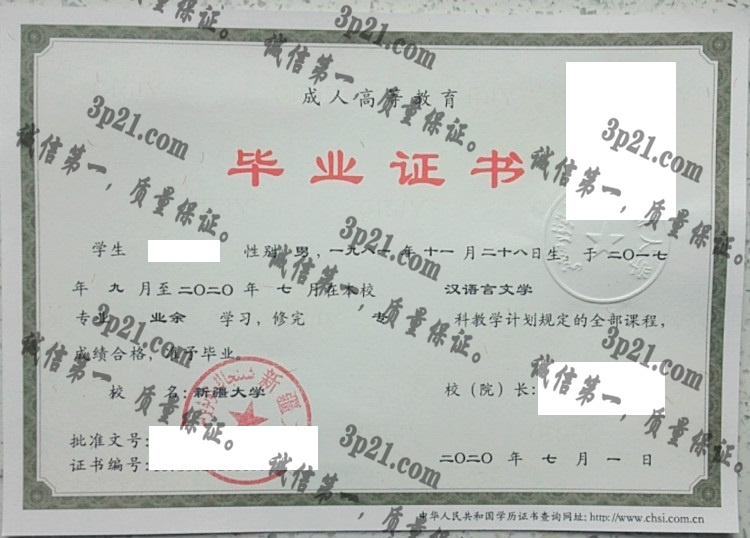 成人高等教育
毕业证书
学生 性别 男，一九八一年十一月二十八日生，于二〇一七
年九月至二〇二〇年七月在本校 汉语言文学
专业 业余 学习，修完 专 科教学计划规定的全部课程，
成绩合格，准予毕业。
校 名：新疆大学 校（院）长：
批准文号：
证书编号：
二〇二〇年七月一日
中华人民共和国学历证书查询网址：http://www.chsi.com.cn
3p21.com
诚信第一，质量保证。
3p21.com
诚信第一，质量保证。
3p21.com
诚信第一，质量保证。
3p21.com
诚信第一，质量保证。
3p21.com
诚信第一，质量保证。
3p21.com
诚信第一，质量保证。
3p21.com
诚信第一，质量保证。
3p21.com
诚信第一，质量保证。